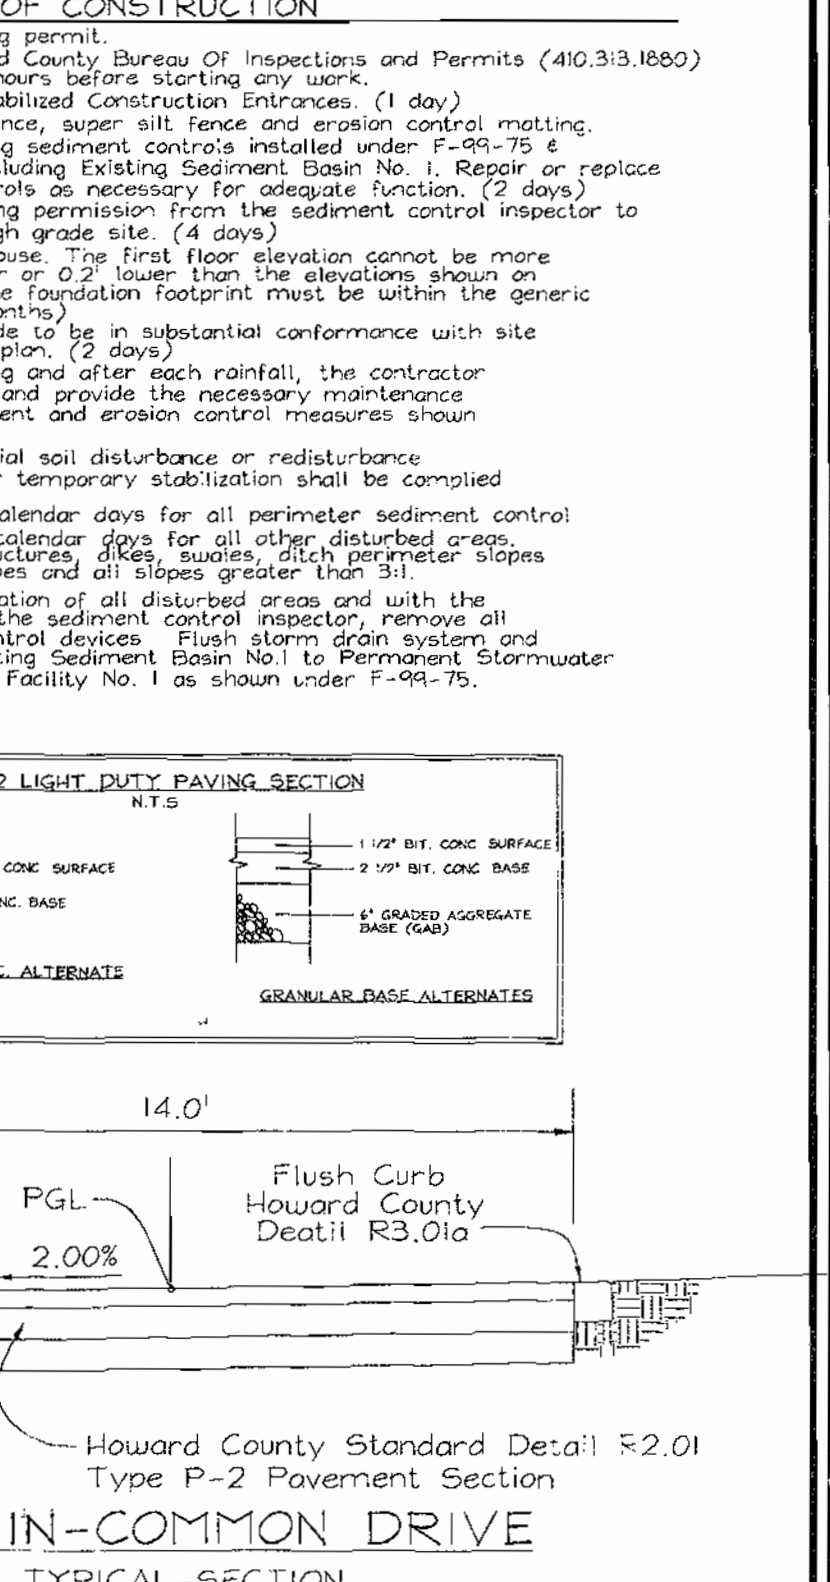 OF CONSTRUCTION
g permit.
d County Bureau Of Inspections and Permits (410.313.1880)
hours before starting any work.
abilized Construction Entrances. (1 day)
nce, super silt fence and erosion control matting.
g sediment controls installed under F-99-75 &
luding Existing Sediment Basin No. 1. Repair or replace
rols as necessary for adequate function. (2 days)
ng permission from the sediment control inspector to
gh grade site. (4 days)
ouse. The first floor elevation cannot be more
r or 0.2' lower than the elevations shown on
e foundation footprint must be within the generic
onths)
de to be in substantial conformance with site
plan. (2 days)
g and after each rainfall, the contractor
and provide the necessary maintenance
ent and erosion control measures shown
ial soil disturbance or redisturbance
r temporary stabilization shall be complied
alendar days for all perimeter sediment control
calendar days for all other disturbed areas.
uctures, dikes, swales, ditch perimeter slopes
pes and all slopes greater than 3:1.
ation of all disturbed areas and with the
the sediment control inspector, remove all
ntrol devices Flush storm drain system and
ting Sediment Basin No.1 to Permanent Stormwater
Facility No. 1 as shown under F-99-75.
2 LIGHT DUTY PAVING SECTION
N.T.S
1 1/2" BIT. CONC SURFACE
CONC SURFACE
2 1/2" BIT. CONC BASE
NC. BASE
6" GRADED AGGREGATE
BASE (GAB)
C. ALTERNATE
GRANULAR BASE ALTERNATES
14.0'
Flush Curb
PGL
Howard County
Deatil R3.01a
2.00%
Howard County Standard Detail R2.01
Type P-2 Pavement Section
IN-COMMON DRIVE
TYPICAL SECTION